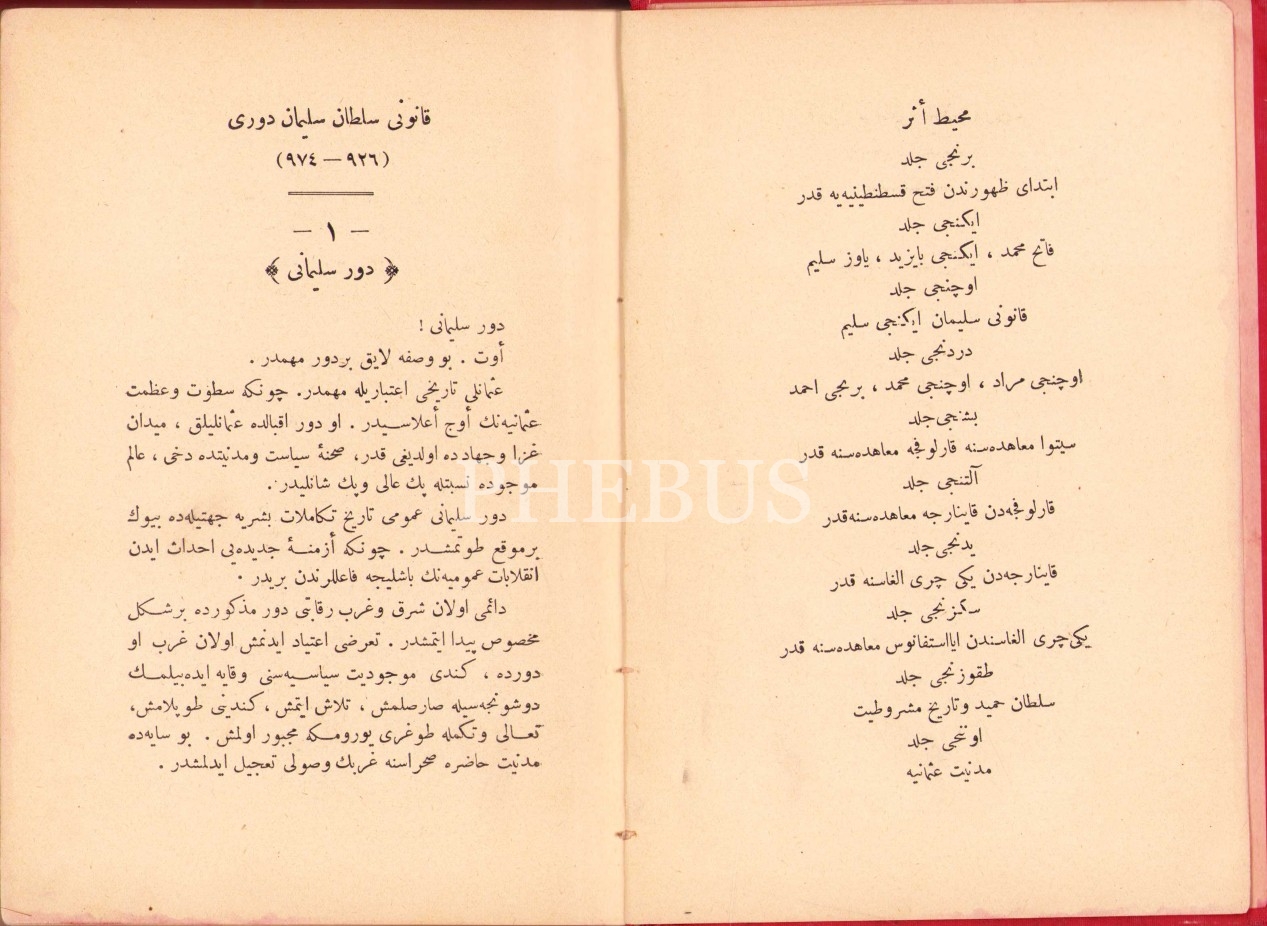 محيط أثر
برنجى جلد
ابتداى ظهورندن فتح قسطنطينيه‌يه قدر
ايكنجى جلد
فاتح محمد ، ايكنجى بايزيد ، ياوز سليم
اوچنجى جلد
قانونى سليمان ايكنجى سليم
دردنجى جلد
اوچنجى مراد ، اوچنجى محمد ، برنجى احمد
بشنجى جلد
سيتوا معاهده‌سنه قارلوفجه معاهده‌سنه قدر
آلتنجى جلد
قارلوفجه‌دن قاينارجه معاهده‌سنه قدر
يدنجى جلد
قاينارجه‌دن يكى چرى الغاسنه قدر
سكزنجى جلد
يكى چرى الغاسندن اياستفانوس معاهده‌سنه قدر
طقوزنجى جلد
سلطان حميد وتاريخ مشروطيت
اوننجى جلد
مدنيت عثمانيه
قانونى سلطان سليمان دورى
(٩٢٦ — ٩٧٤)
— ١ —
﴿ دور سليمانى ﴾
دور سليمانى !
أوت . بو وصفه لايق بردور مهمدر .
عثمانلى تاريخى اعتباريله مهمدر. چونكه سطوت وعظمت
عثمانيه‌نك أوج أعلاسيدر . او دور اقبالده عثمانليلق ، ميدان
غزا وجهادده اولديغى قدر، صحنۀ سياست ومدنيتده دخى ، عالم
موجوده نسبتله پك عالى وپك شانليدر .
دور سليمانى عمومى تاريخ تكاملات بشريه جهتيله‌ده بيوك
برموقع طوتمشدر . چونكه أزمنۀ جديده‌يى احداث ايدن
انقلابات عموميه‌نك باشليجه فاعللرندن بريدر .
دائمى اولان شرق وغرب رقابتى دور مذكورده برشكل
مخصوص پيدا ايتمشدر . تعرضى اعتياد ايدنمش اولان غرب او
دورده ، كندى موجوديت سياسيه‌سنى وقايه ايده‌بيلمك
دوشونجه‌سيله صارصلمش ، تلاش ايتمش ، كندينى طوپلامش،
تعالى وتكمله طوغرى يورومكه مجبور اولمش . بو سايه‌ده
مدنيت حاضره صحراسنه غربك وصولى تعجيل ايدلمشدر .
PHEBUS